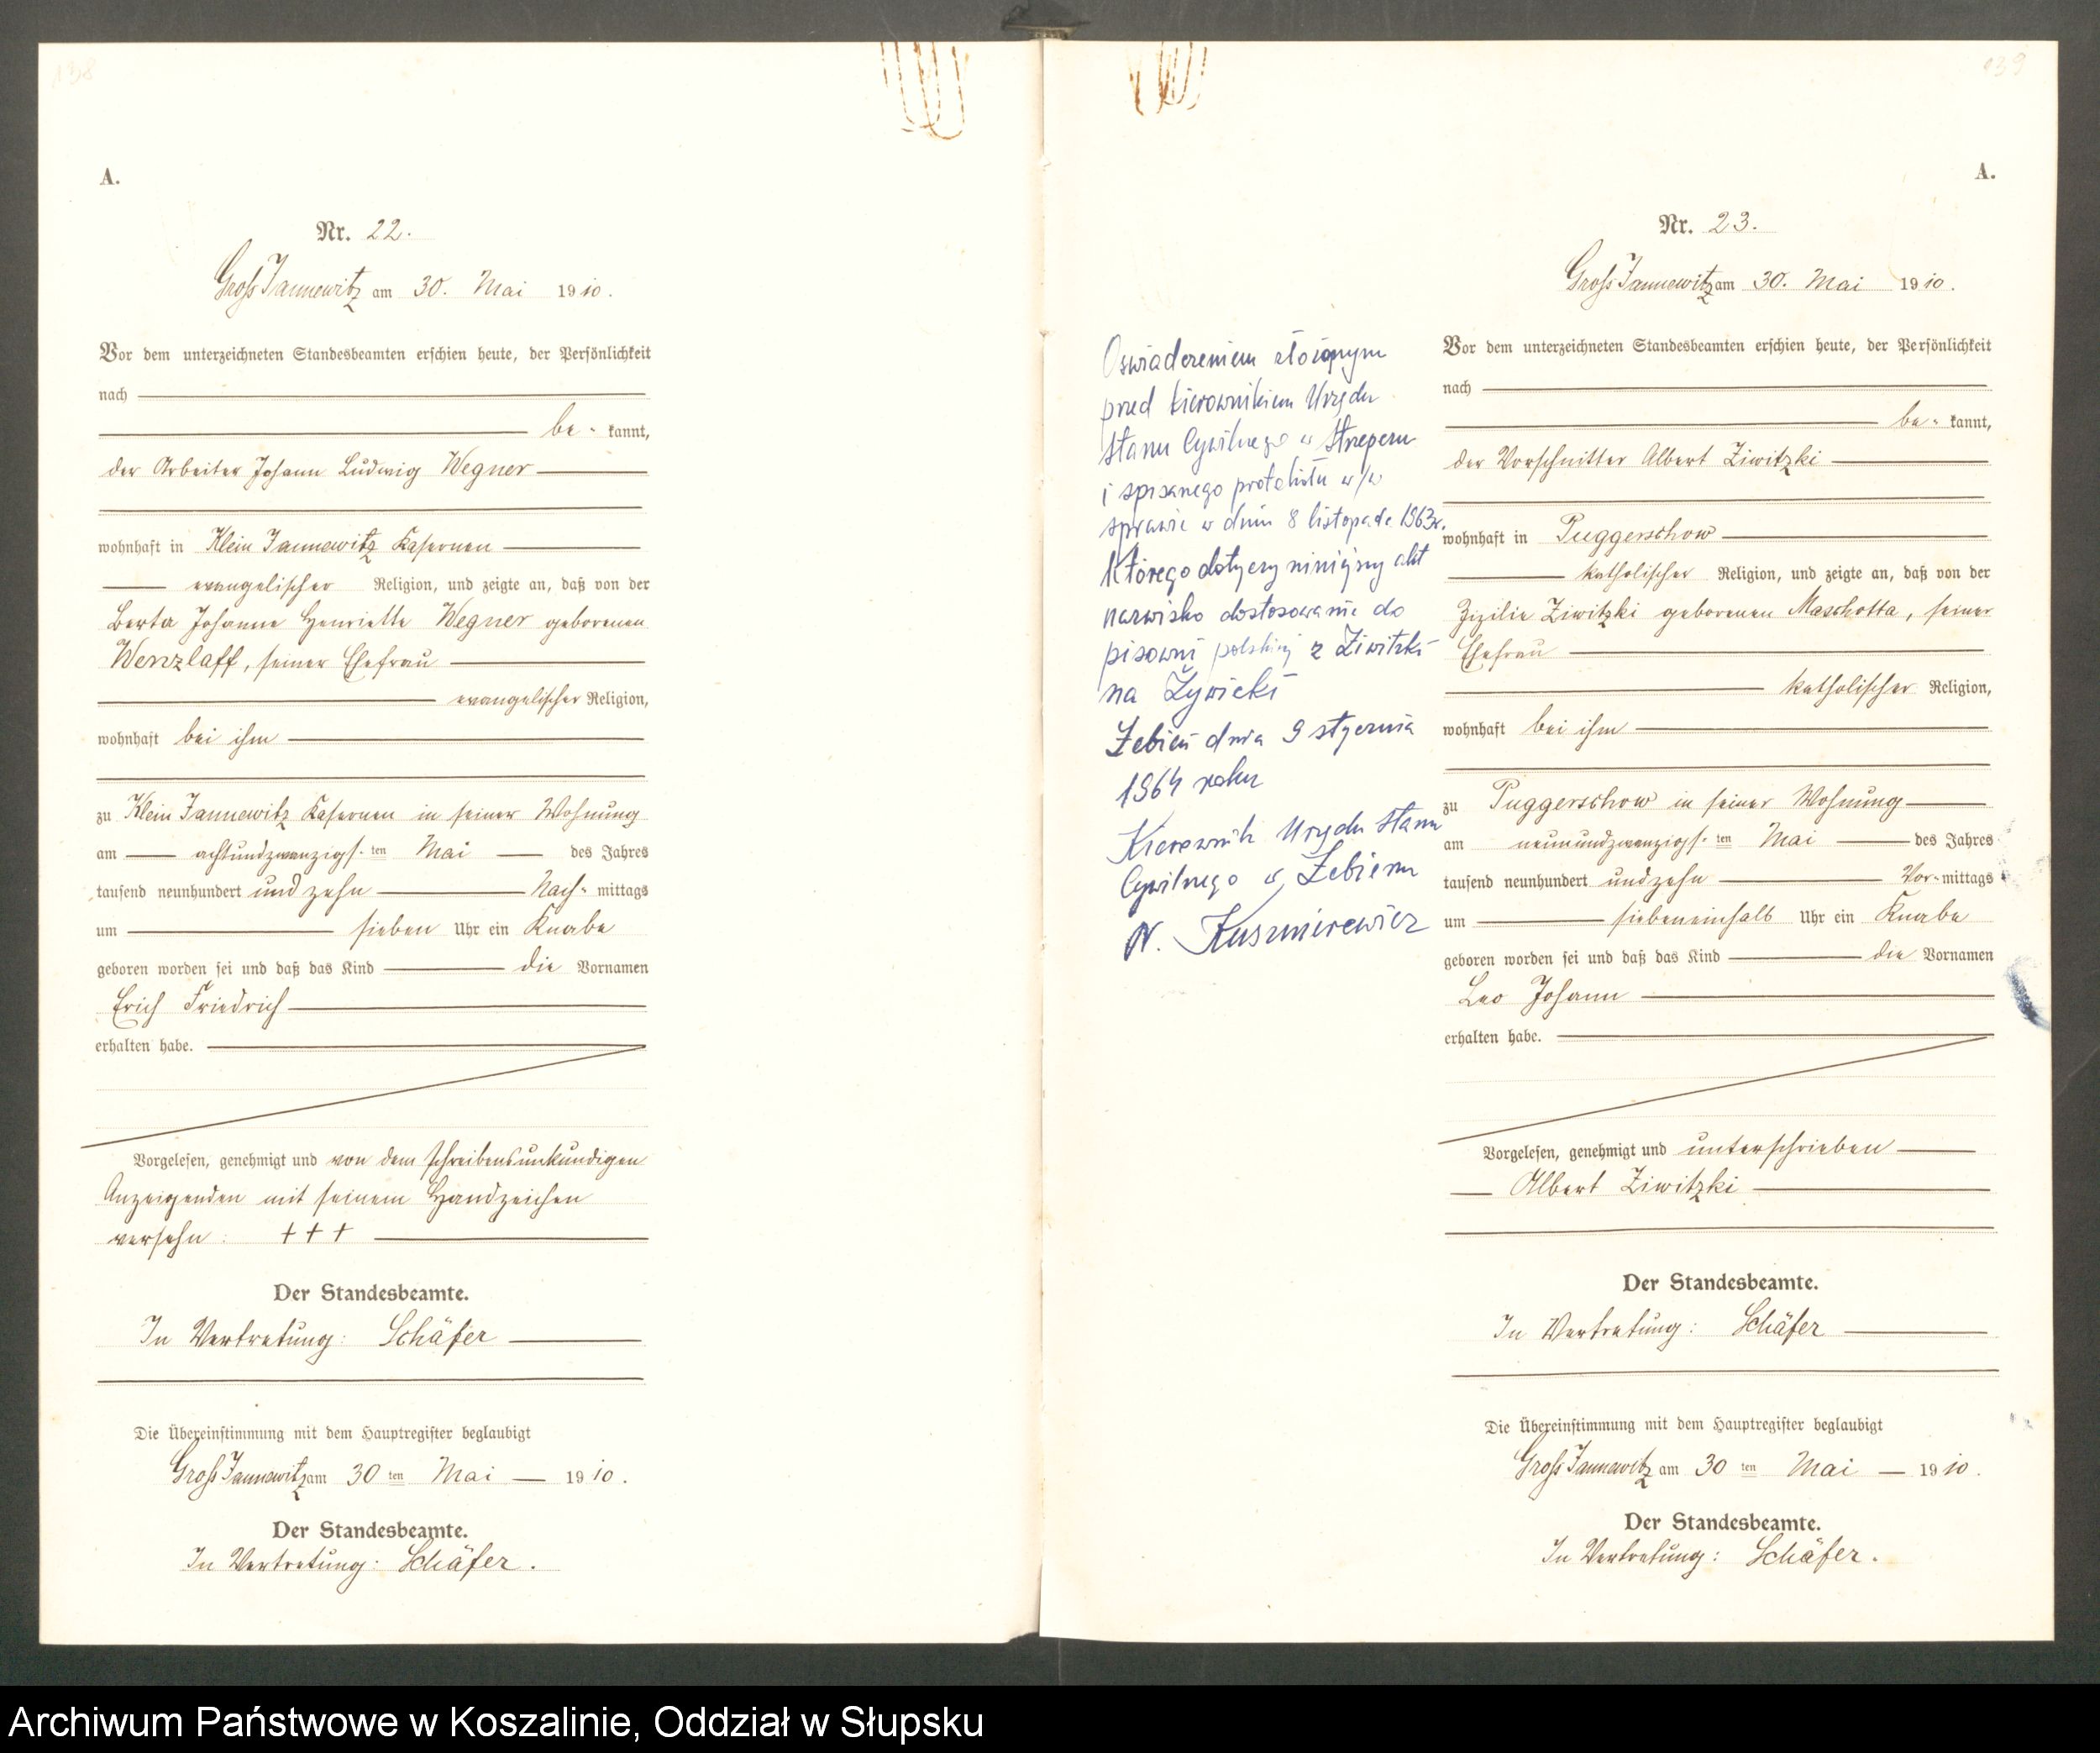 138
A.
Nr. 22.
Groß Jannewitz am 30. Mai 1910.
Vor dem unterzeichneten Standesbeamten erschien heute, der Persönlichkeit
nach
be- kannt,
der Arbeiter Johann Ludwig Wegner
wohnhaft in Klein Jannewitz Kasernen
evangelischer Religion, und zeigte an, daß von der
Berta Johanne Henriette Wegner geborenen
Wenzlaff, seiner Ehefrau
evangelischer Religion,
wohnhaft bei ihm
zu Klein Jannewitz Kasernen in seiner Wohnung
am achtundzwanzigs-ten Mai des Jahres
tausend neunhundert und zehn Nach- mittags
um sieben Uhr ein Knabe
geboren worden sei und daß das Kind die Vornamen
Erich Friedrich
erhalten habe.
Vorgelesen, genehmigt und von dem schreibensunkundigen
Anzeigenden mit seinem Handzeichen
versehn: +++
Der Standesbeamte.
In Vertretung: Schäfer
Die Übereinstimmung mit dem Hauptregister beglaubigt
Groß Jannewitz am 30 ten Mai 1910.
Der Standesbeamte.
In Vertretung: Schäfer.
139
A.
Oświadczeniem złożonym
przed kierownikiem Urzędu
Stanu Cywilnego w Strzepczu
i spisanego protokółu w/w
sprawie w dniu 8 listopada 1963r.
którego dotyczy niniejszy akt
nazwisko dostosowanie do
pisowni polskiej z Ziwitzki
na Żywicki
Łebień dnia 9 stycznia
1964 roku
Kierownik Urzędu Stanu
Cywilnego w Łebieniu
W. Kuszmirewicz
Nr. 23.
Groß Jannewitz am 30. Mai 1910.
Vor dem unterzeichneten Standesbeamten erschien heute, der Persönlichkeit
nach
be- kannt,
der Vorschnitter Albert Ziwitzki
wohnhaft in Puggerschow
katholischer Religion, und zeigte an, daß von der
Zizilie Ziwitzki geborenen Maschotta, seiner
Ehefrau
katholischer Religion,
wohnhaft bei ihm
zu Puggerschow in seiner Wohnung
am neunundzwanzigs-ten Mai des Jahres
tausend neunhundert undzehn Vor- mittags
um siebeneinhalb Uhr ein Knabe
geboren worden sei und daß das Kind die Vornamen
Leo Johann
erhalten habe.
Vorgelesen, genehmigt und unterschrieben
Albert Ziwitzki
Der Standesbeamte.
In Vertretung: Schäfer
Die Übereinstimmung mit dem Hauptregister beglaubigt
Groß Jannewitz am 30 ten Mai 1910.
Der Standesbeamte.
In Vertretung: Schäfer.
Archiwum Państwowe w Koszalinie, Oddział w Słupsku